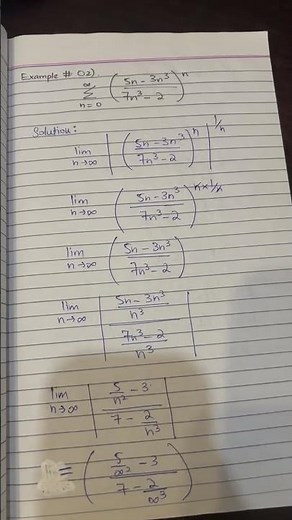 Example # 02)
∞ Σ n=0 ( (5n - 3n³) / (7n³ - 2) )ⁿ
Solution:
lim n→∞ | ( (5n - 3n³) / (7n³ - 2) )ⁿ |^(1/n)
lim n→∞ ( (5n - 3n³) / (7n³ - 2) )^(n × 1/n)
lim n→∞ ( (5n - 3n³) / (7n³ - 2) )
lim n→∞ | ( (5n - 3n³) / n³ ) / ( (7n³ - 2) / n³ ) |
lim n→∞ | ( 5/n² - 3 ) / ( 7 - 2/n³ ) |
= ( ( 5/∞² - 3 ) / ( 7 - 2/∞³ ) )